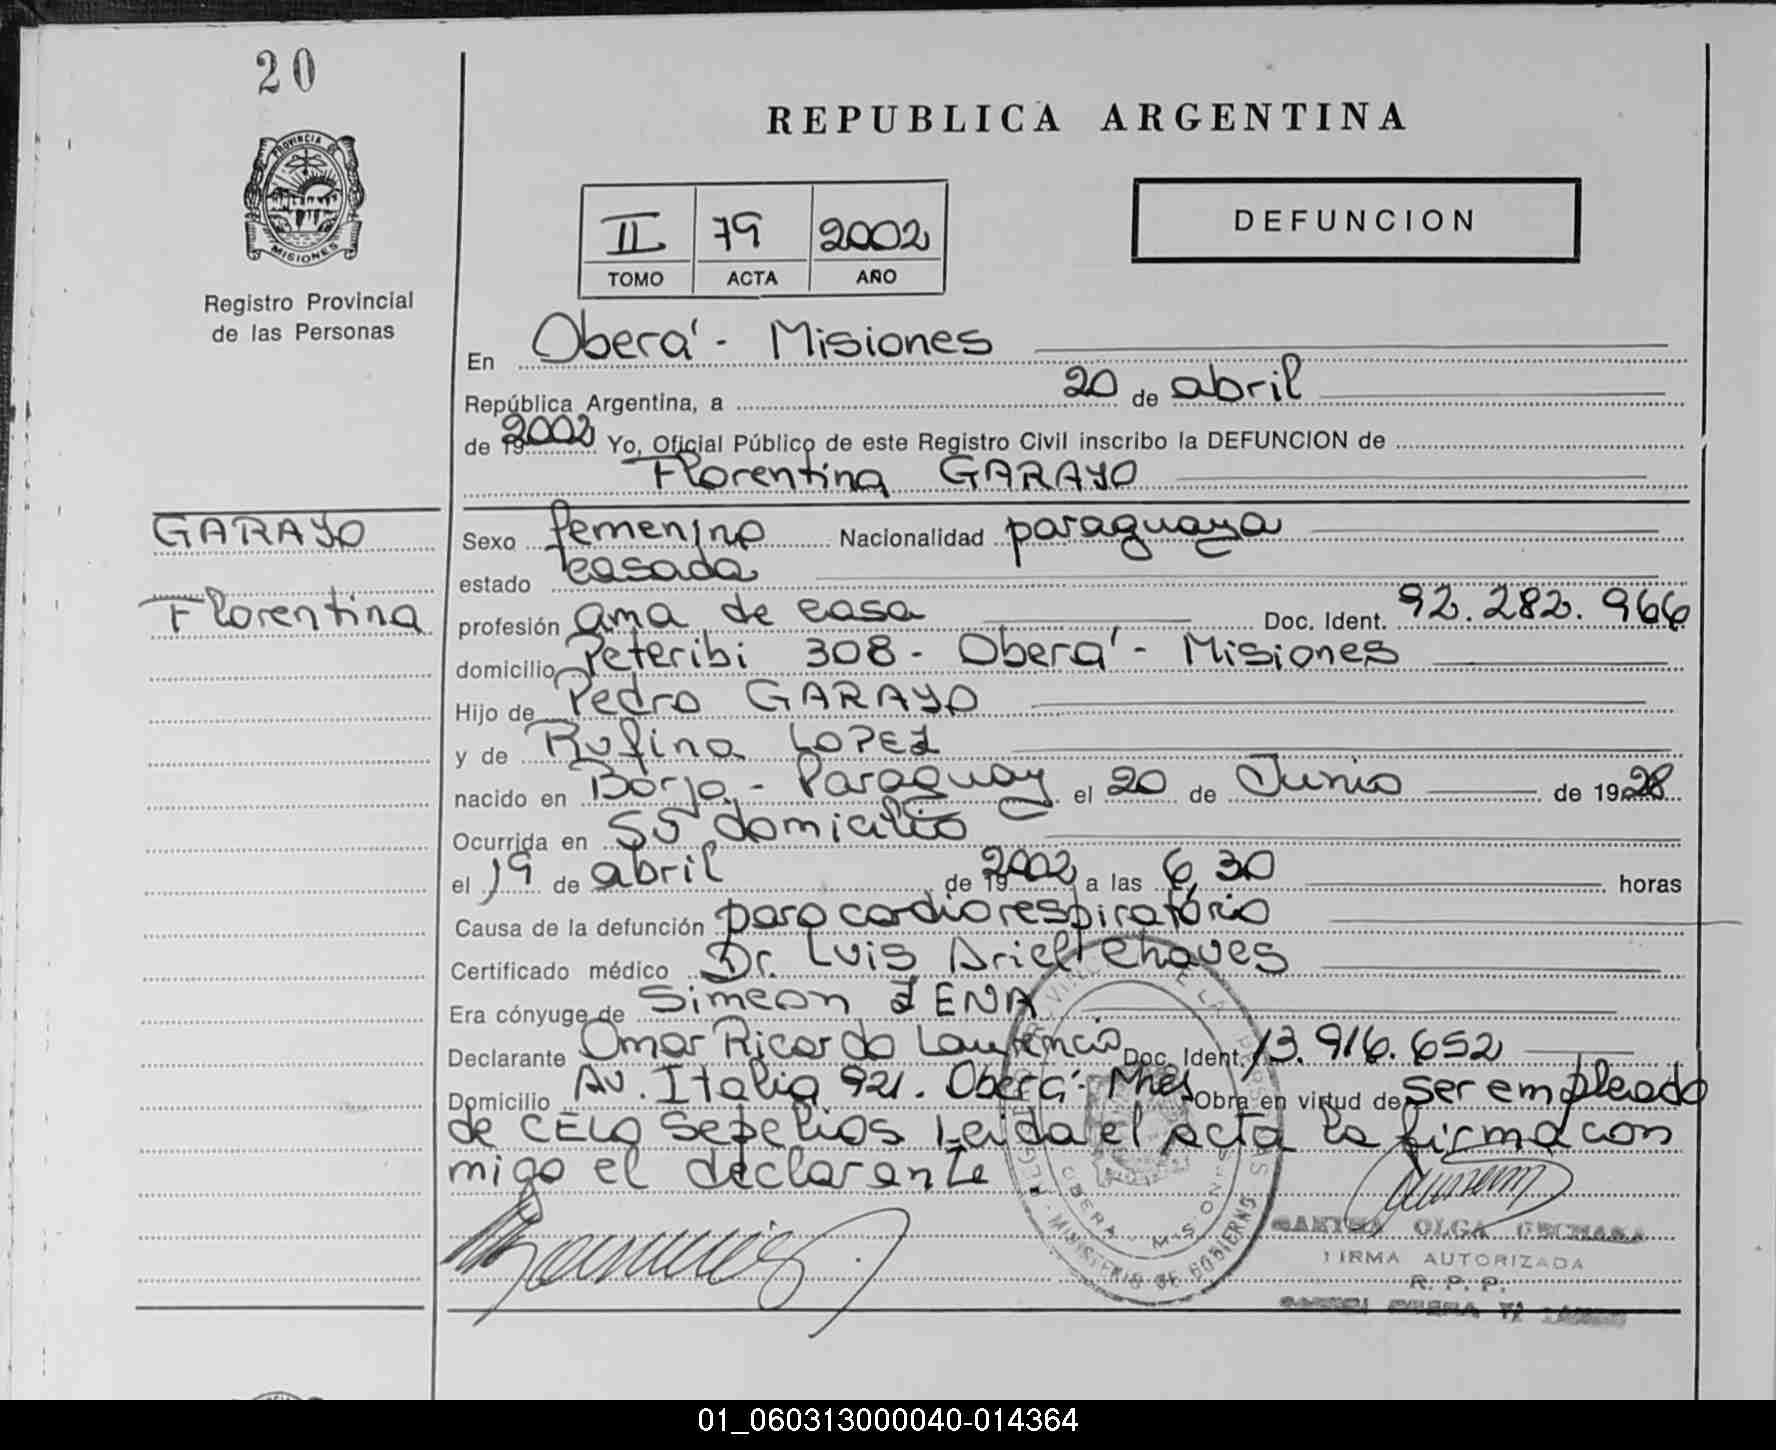 20
PROVINCIA DE
MISIONES
Registro Provincial
de las Personas
REPUBLICA ARGENTINA
II 79 2002
TOMO ACTA AÑO
DEFUNCION
En Oberá - Misiones
República Argentina, a 20 de abril
de 19 2002 Yo, Oficial Público de este Registro Civil inscribo la DEFUNCION de
Florentina GARAYO
GARAYO
Florentina
Sexo femenino Nacionalidad paraguaya
estado casada
profesión ama de casa Doc. Ident. 92.282.966
domicilio Peteribi 308 - Oberá - Misiones
Hijo de Pedro GARAYO
y de Rufina LOPEZ
nacido en Borja - Paraguay el 20 de Junio de 1928
Ocurrida en su domicilio
el 19 de abril de 19 2002 a las 6 30 horas
Causa de la defunción paro cardiorespiratório
Certificado médico Dr. Luis Ariel Chaves
Era cónyuge de Simeon ZENA
Declarante Omar Ricardo Doc. Ident. 13.916.652
Domicilio Av. Italia 921. Oberá - Mnes Obra en virtud de ser empleado
de CELO Sepelios Leida el acta la firma con
migo el declarante
OBERA - MISIONES
MINISTERIO DE GOBIERNO
OLGA
FIRMA AUTORIZADA
R. P. P.
01_060313000040-014364